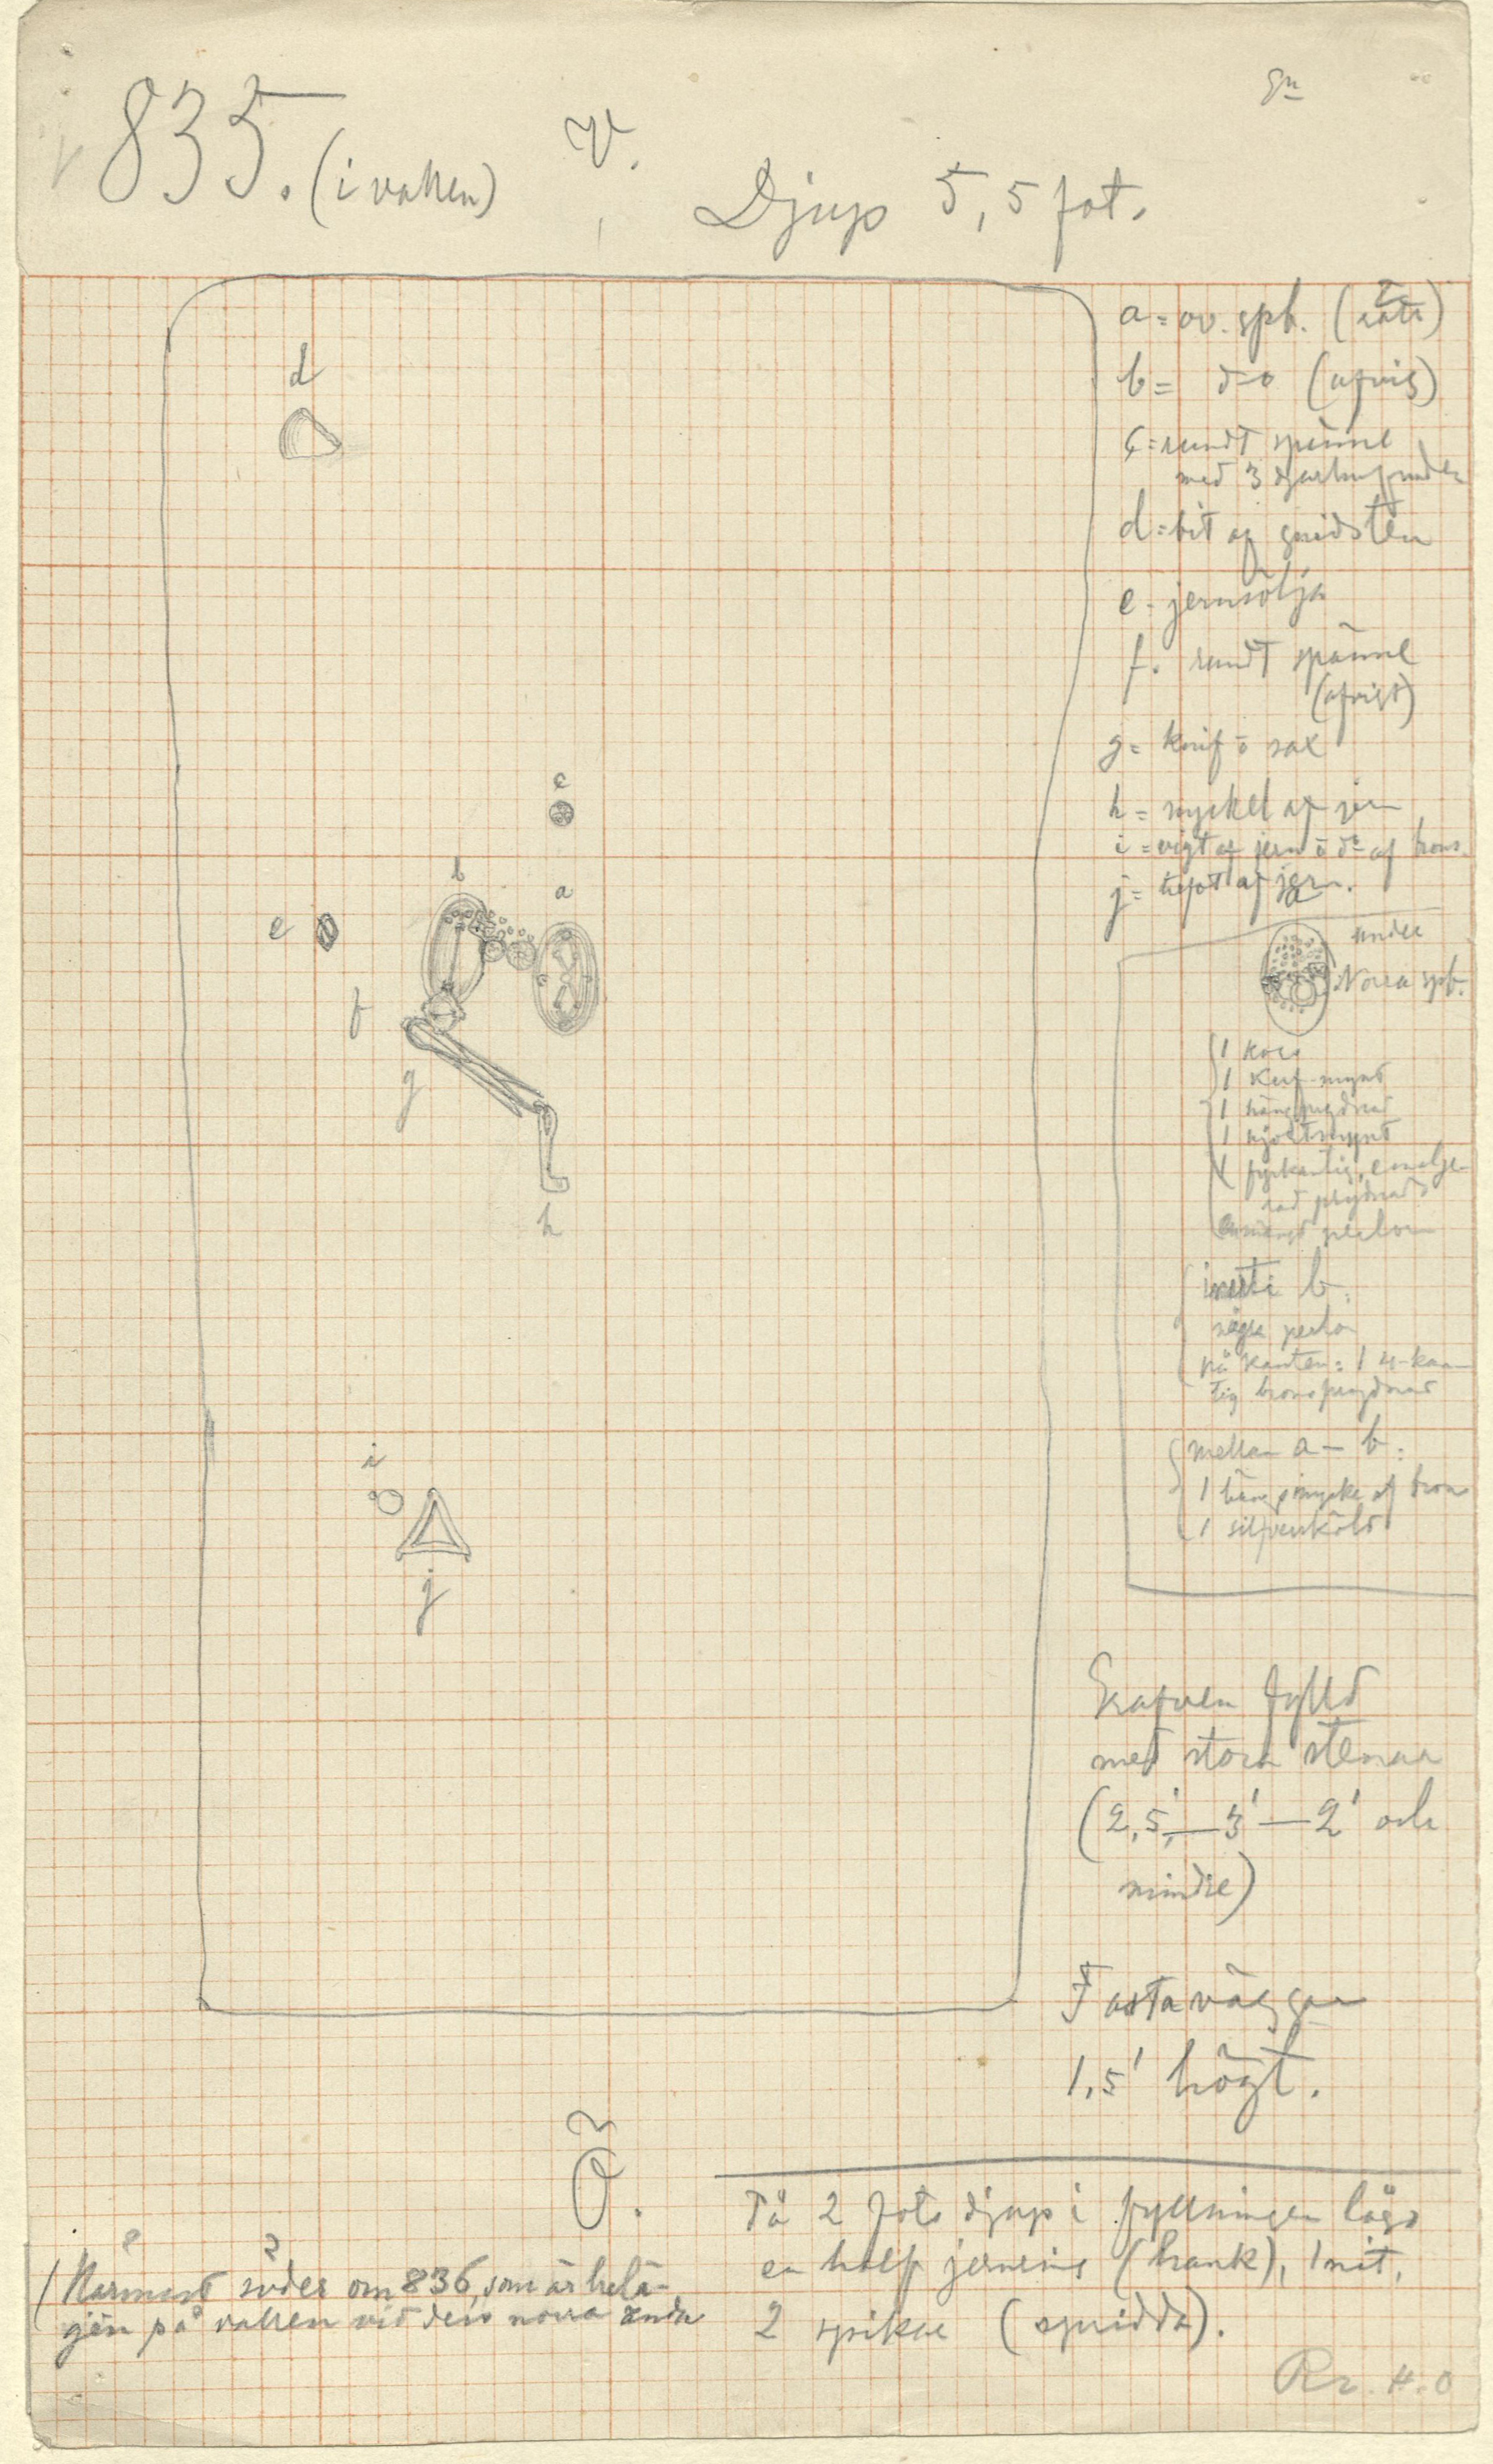 835. (i vallen)
V.
Djup 5,5 fot.
a = ov. spb. (rätt)
b = d=o (afvig)
c = rundt spänne
med 3 djurhufvuden
d = bit af gnidsten
e - jernsölja
f. rundt spänne
(afvigt)
g = knif o sax
h = nyckel af jern
i = vigt af jern o do af brons.
j = af jern.
d
c
b
a
e
f
g
h
i
j
under
Norra spb.
1 kors
1 Kuf-mynt
1 hängprydnad
1 mynt
1 fyrkantig, emalje-
rad prydnad
perlor
inuti b.
några perlor
på kanten: 1 4-kan-
tig bronsprydnad
mellan a - b:
1 hängsmycke af brons
1 silfversköld
Grafven fylld
med stora stenar
(2,5' - 3' - 2' och
mindre)
Fasta väggar
1,5' högt.
Ö.
På 2 fots djup i fyllningen lågo
en half jernring (hank), 1 nit,
2 spikar (spridda).
(Närmast söder om 836, som är belä-
gen på vallen vid dess norra ända